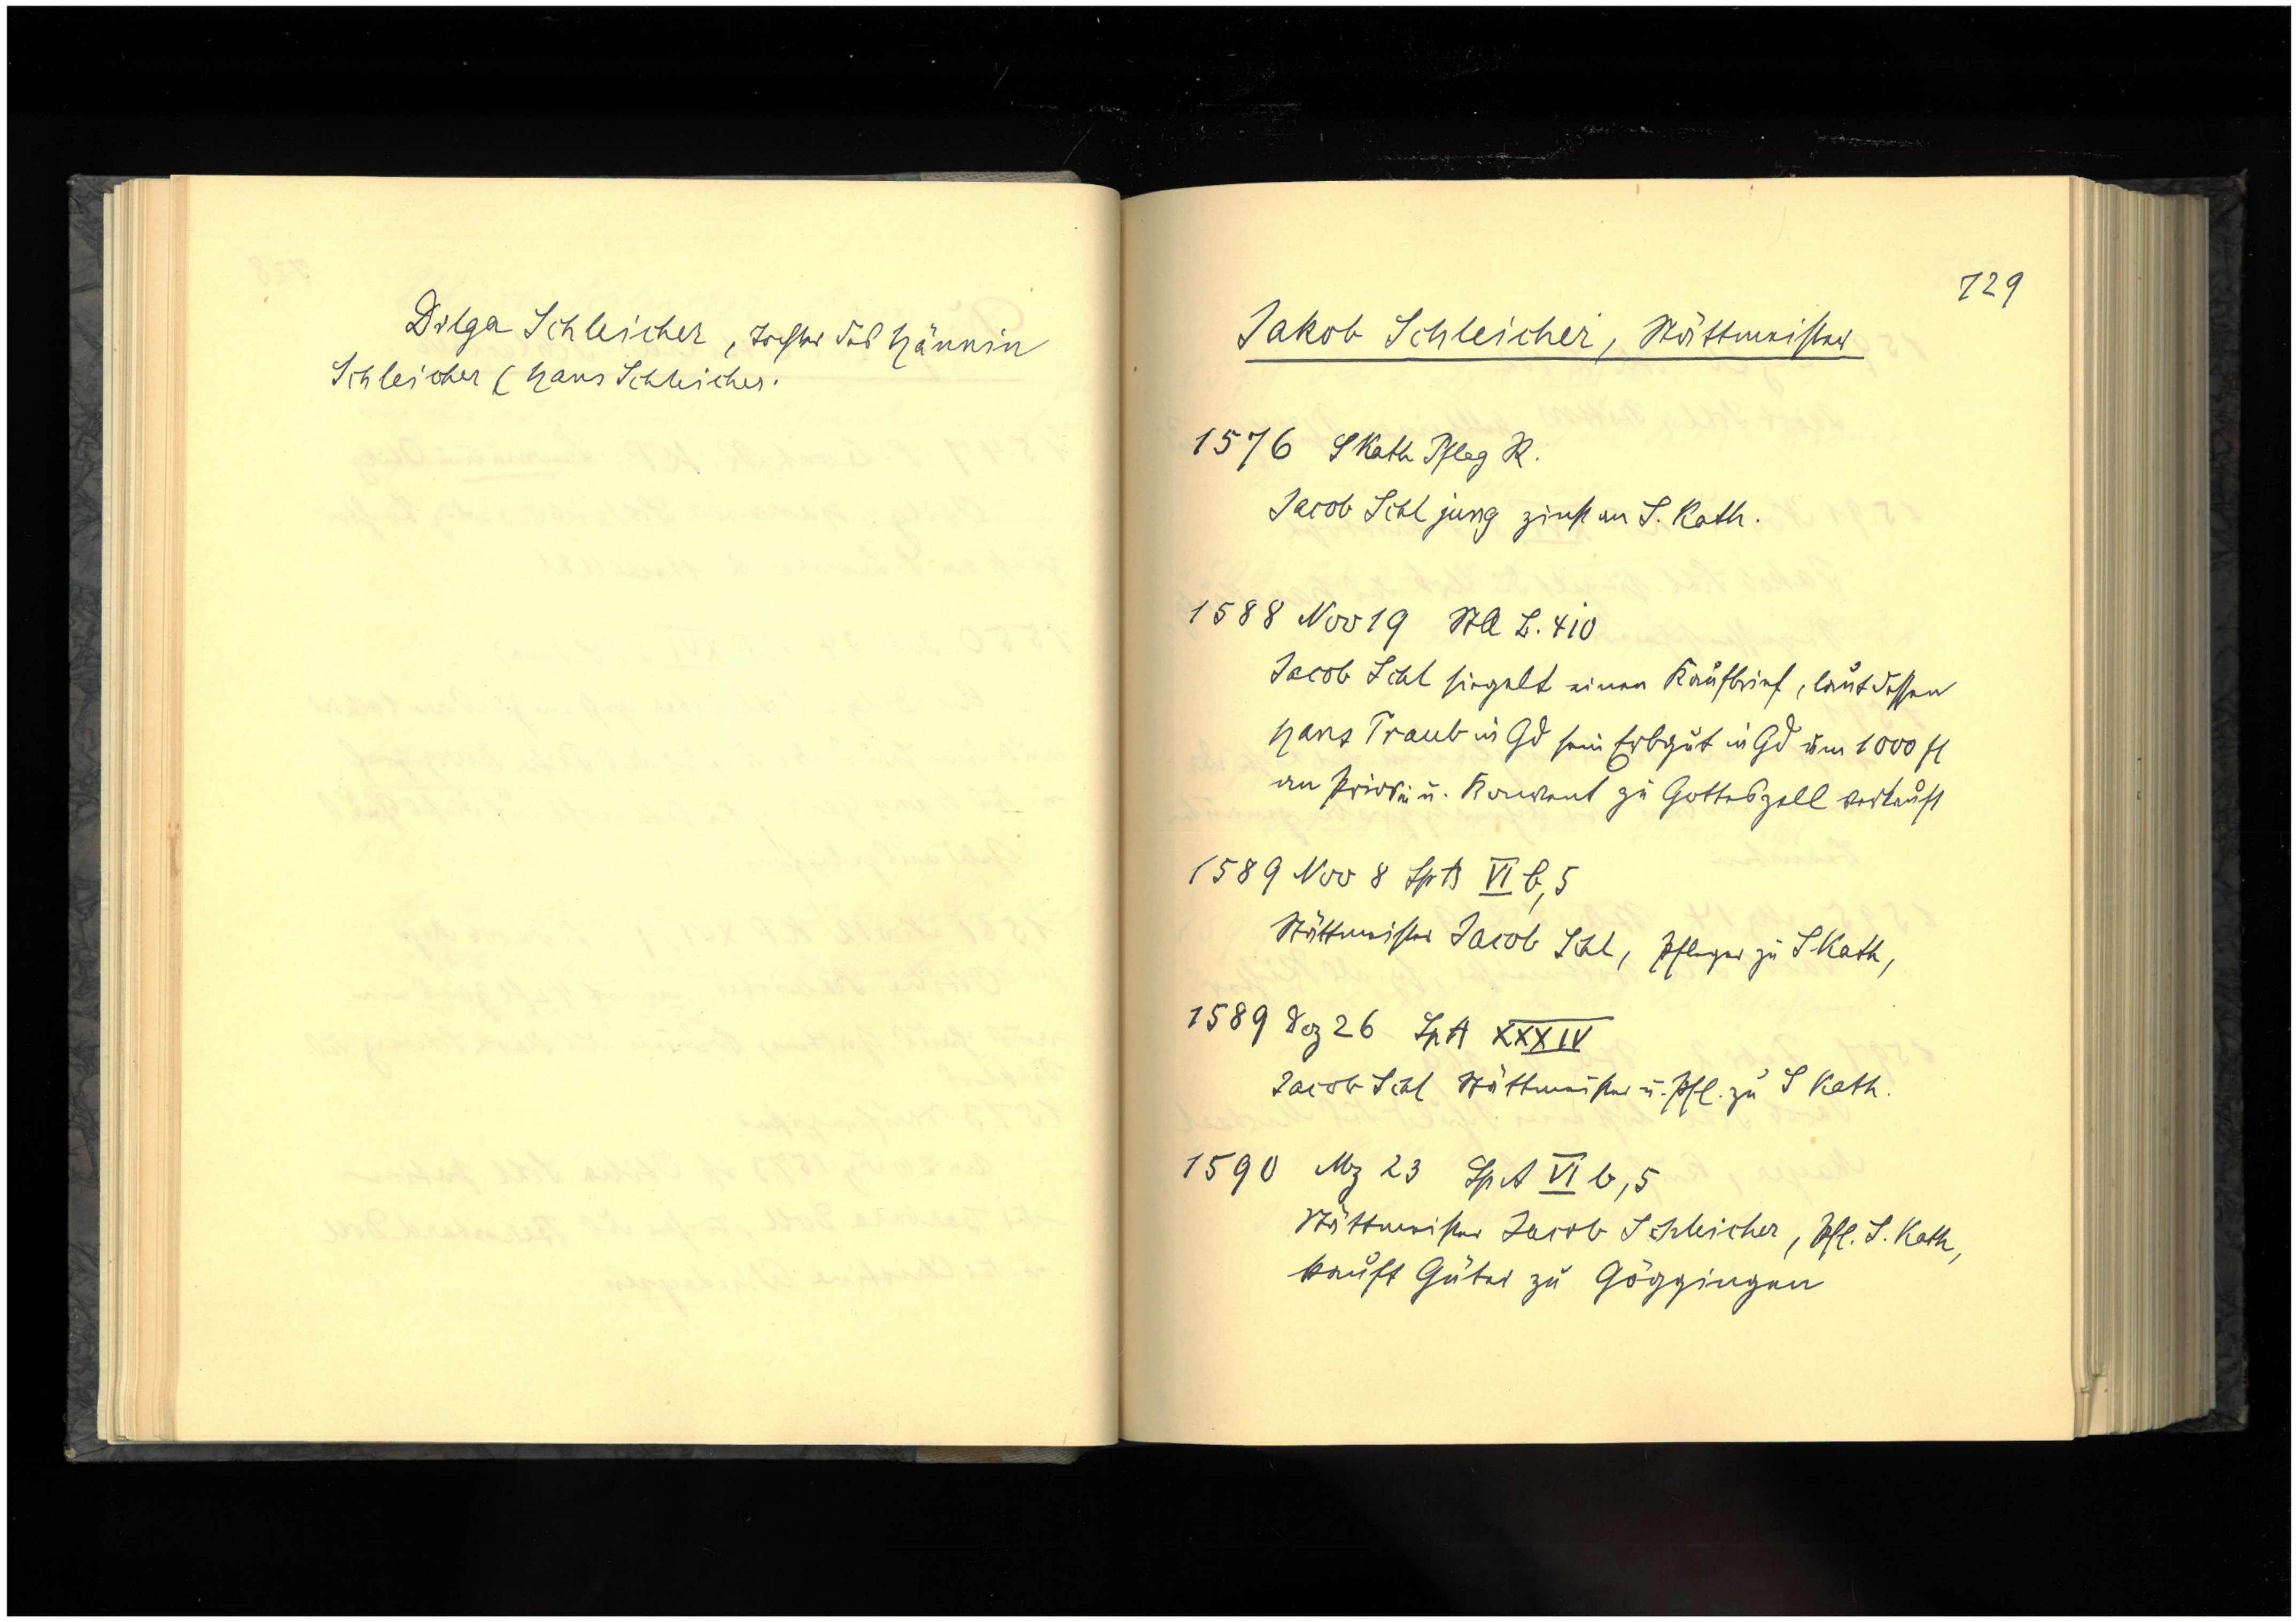 Dilga Schleicher, Tochter des Hännsin
Schleicher (Hans Schleicher.
729
Jakob Schleicher, Stättmeister
1576 S Kath Pfleg R.
Jacob Schl jung zinst an S. Kath.
1588 Nov 19 StA L. 410
Jacob Schl siegelt einen Kaufbrief, laut dessen
Hans Traub in Gd sein Erbgut in Gd um 1000 fl
an Priorin u. Konvent zu Gotteszell verkauft
1589 Nov 8 SpA VI b, 5
Stättmeister Jacob Schl, Pfleger zu S Kath,
1589 Dez 26 SpA XXXIV
Jacob Schl Stättmeister u. Pfl. zu S Kath.
1590 Mz 23 SpA VI b, 5
Stättmeister Jacob Schleicher, Pfl. S. Kath,
kauft Güter zu Göggingen